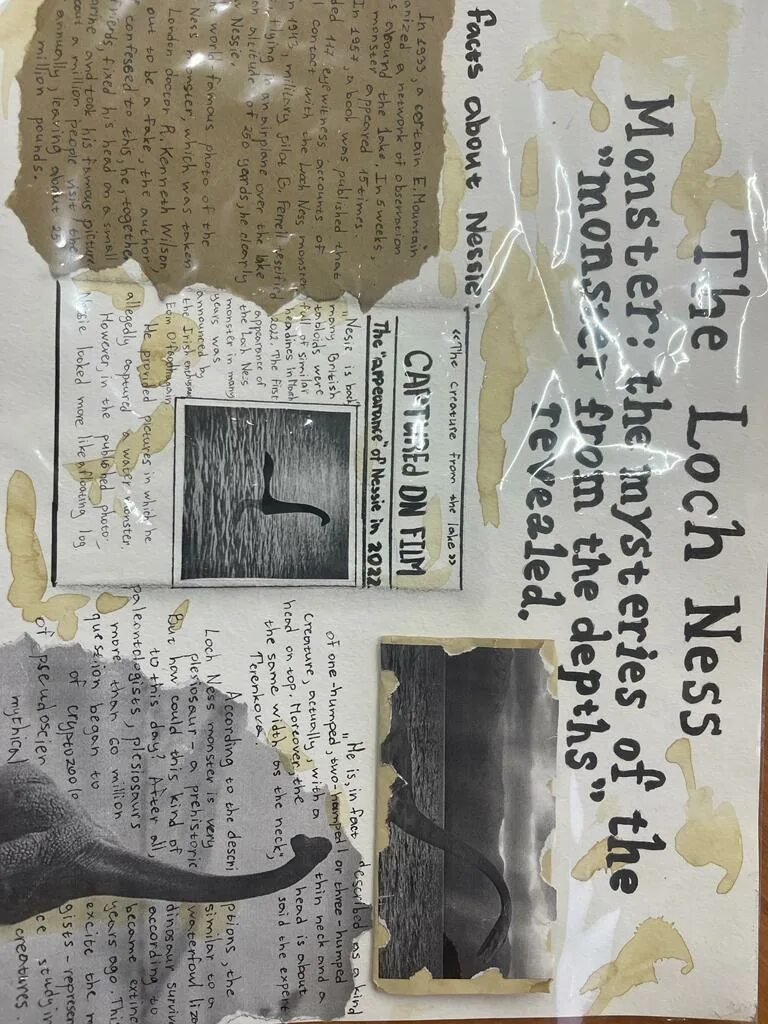 The Loch Ness
Monster: the mysteries of the
"monster from the depths"
revealed.
facts about Nessie:
In 1933, a certain E. Mountain
anized a network of observation
s abound the lake. In 5 weeks,
monster appeared 15 times.
In 1957, a book was published that
ded 117 eyewitness accounts of
l contact with the Loch Ness monster
n 1943, military pilot B. Ferrell testified
t, flying in an airplane over the lake
an altitude of 250 yards, he clearly
w Nessie.
world famous photo of the
Ness monster, which was taken
London doctor R. Kenneth Wilson,
out to be a fake, the author,
confessed to this, he, together
riends, fixed his head on a small
arine and took his famous picture
out a million people visit the
annually, leaving about 25
million pounds.
«The creature from the lake»
CAPTURED ON FILM
The "appearance" of Nessie in 2022
"Nessie is back"
many British
tabloids were
full of similar
headlines in March
2022. The first
appearance of
the Loch Ness
monster in many
years was
announced by
the Irish
Eoin O'Faodhagain
He provided pictures in which he
allegedly captured a water monster.
However, in the published photo-
Nessie looked more like a floating log
"He is, in fact described as a kind
of one-humped, two-humped or three-humped
creature, actually, with a thin neck and a
head on top. Moreover, the head is about
the same width as the neck", said the expert
Terenkova.
According to the descri ptions, the
Loch Ness monster is very similar to a
plesiosaur - a prehistoric waterfowl liza
But how could this kind of dinosaur surviv
to this day? After all, according to
paleontologists, plesiosaurs became extinc
more than 60 million years ago. This
question began to excite the m
of cryptozoolo gists - represen
of pseudoscien ce studyin
mythical creatures.